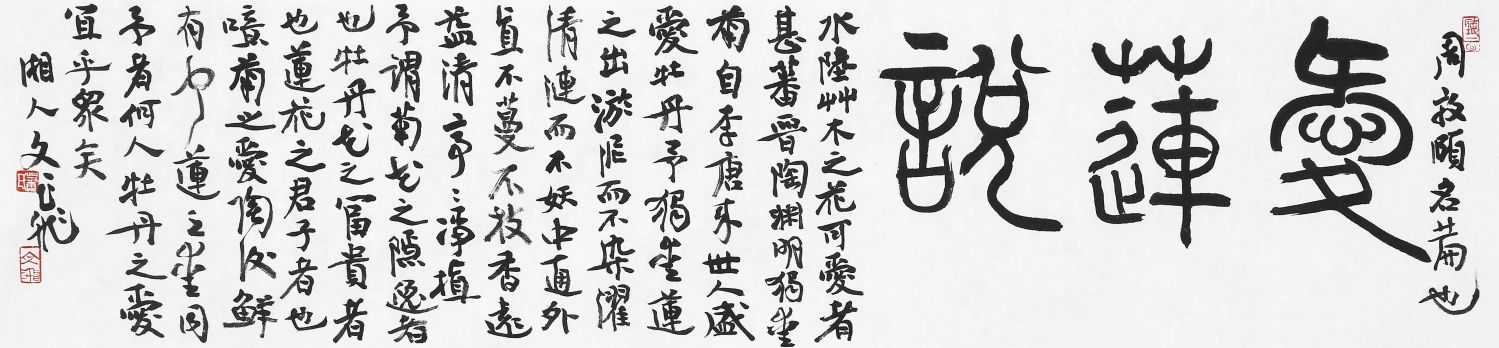 周敦頤名篇也
愛蓮說
水陸艸木之花可愛者
甚蕃晉陶淵明獨愛
菊自李唐來世人盛
愛牡丹予獨愛蓮
之出淤泥而不染濯
清漣而不妖中通外
直不蔓不枝香遠
益清亭〻淨植
予謂菊花之隱逸者
也牡丹花之富貴者
也蓮花之君子者也
噫菊之愛陶後鮮
有聞蓮之愛同
予者何人牡丹之愛
宜乎眾矣
湘人文飛